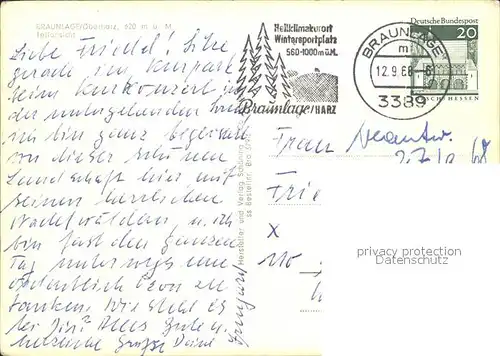 BRAUNLAGE/Oberharz, 620 m ü. M.
Teilansicht
Liebe Friedel! Sitze
gerade im Kurpark
beim Kurkonzert in
der untergehenden
ich bin ganz begeistert
von dieser schönen
Landschaft hier mit
seinen herrlichen
Nadelwäldern u. ich
bin fast den ganzen
Tag unterwegs um
ordentlich Ozon zu
tanken. Wie steht es
bei Dir? Alles Gute u.
herzliche Grüße Deine
Hersteller und Verlag Schöning
Heilklimakurort
Wintersportplatz
560-1000m ü.M.
Braunlage/HARZ
BRAUNLAGE
m
12.9.68
3389
Deutsche Bundespost
20
Frau
Frie
x
privacy protection
Datenschutz